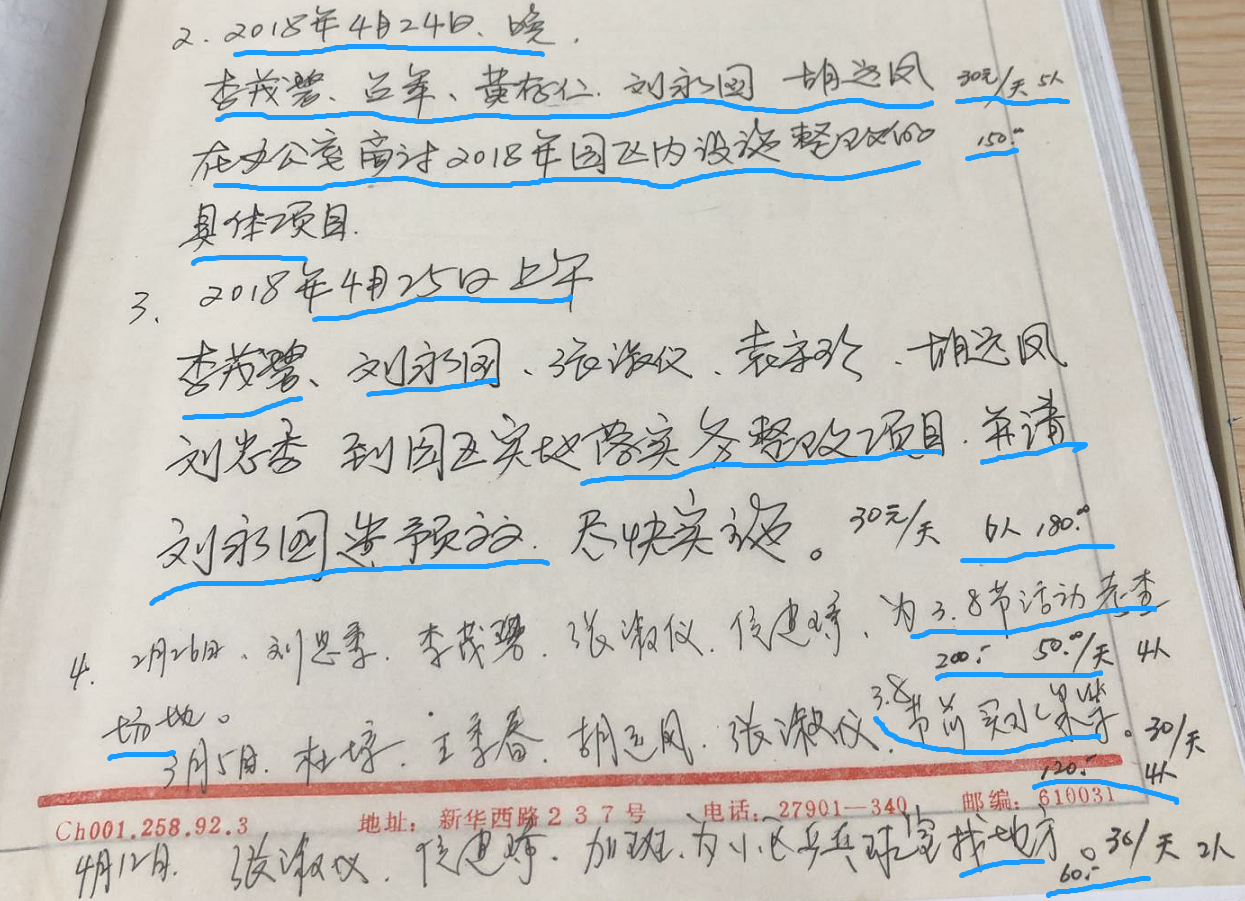 2. 2018年4月24日、晚,
李茂碧、吕军、黄存仁. 刘永国 胡远凤 30元/天 5人
在办公室商讨2018年园区内设施整改的 150.00
具体项目.
3. 2018年4月25日上午
李茂碧、刘永国、张淑仪、袁宗珍、胡远凤
刘忠季 到园区实地落实各整改项目. 并请
刘永国造预放. 尽快实施。 30元/天 6人 180.00
4. 2月26日、刘忠季. 李茂碧. 张淑仪. 侯建琼、为3.8节活动考查
200.- 50.00/天 4人
场地。
3月5日. 杜婷. 王季春. 胡远凤. 张淑仪、3.8节前买水果等。30/天
120.- 4人
Ch001.258.92.3 地址：新华西路237号 电话：27901—340 邮编：610031
4月12日. 张淑仪. 侯建琼. 加班.为小区乒乓球室找地方。30/天 2人
60.-